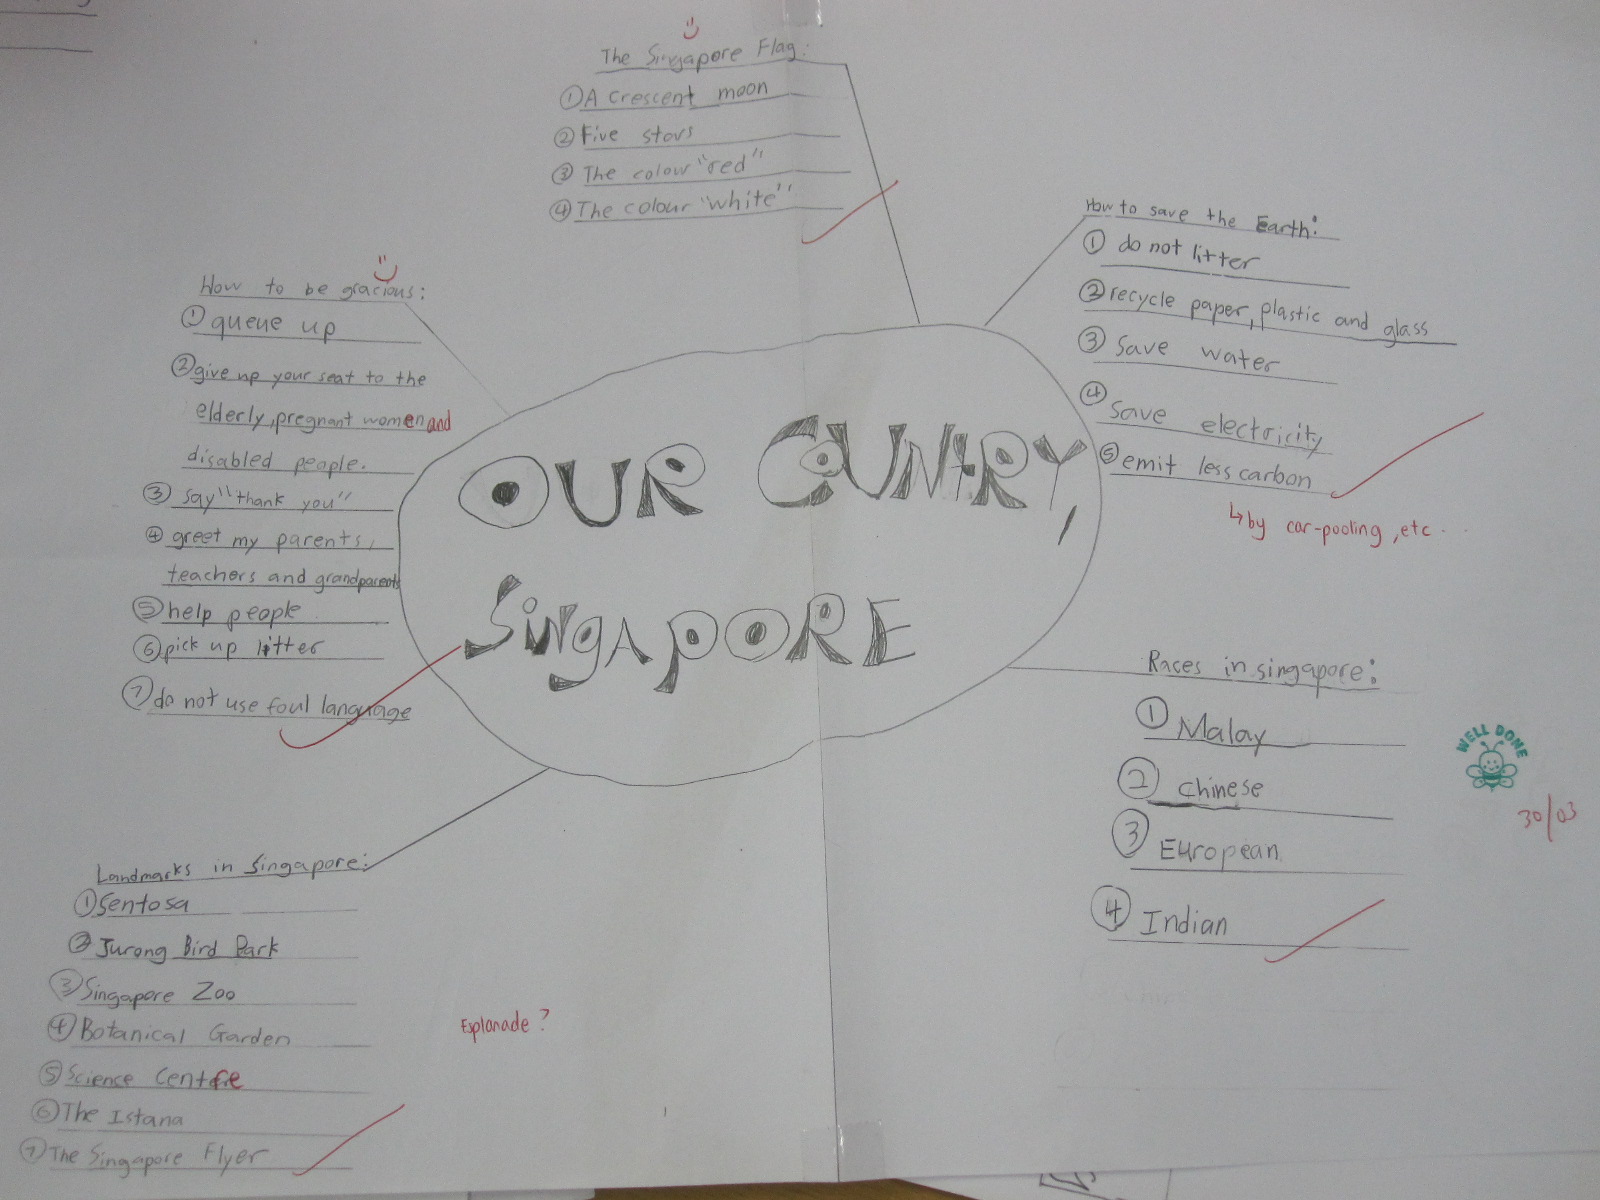 The Singapore Flag:
① A crescent moon
② Five stars
③ The colour "red"
④ The colour "white"
How to save the Earth:
① do not litter
② recycle paper, plastic and glass
③ save water
④ save electricity
⑤ emit less carbon
↳ by car-pooling, etc...
How to be gracious:
① queue up
② give up your seat to the
elderly, pregnant women and
disabled people.
③ say "thank you"
④ greet my parents,
teachers and grandparents
⑤ help people
⑥ pick up litter
⑦ do not use foul language
OUR COUNTRY,
SINGAPORE
Races in singapore:
① Malay
② Chinese
③ European
④ Indian
WELL DONE
30/03
Landmarks in Singapore:
① Sentosa
② Jurong Bird Park
③ Singapore Zoo
④ Botanical Garden
⑤ Science Centre
⑥ The Istana
⑦ The Singapore Flyer
Esplanade?